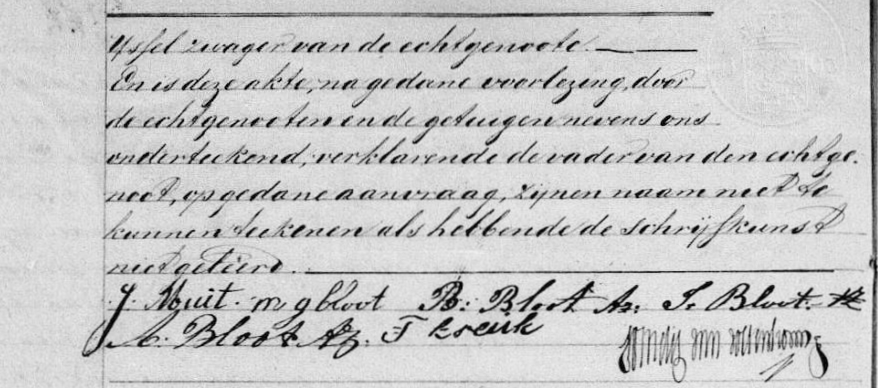 Yssel zwager van de echtgenoote.
En is deze akte, na gedane voorlezing, door
de echtgenooten en de getuigen nevens ons
onderteekend, verklarende de vader van den echtge-
noot, op gedane aanvraag, zijnen naam niet te
kunnen teekenen als hebbende de schrijfkunst
niet geleerd.
J. Muit. m g bloot B: Bloot Az: J. Bloot. Az
A. Bloot Az. T